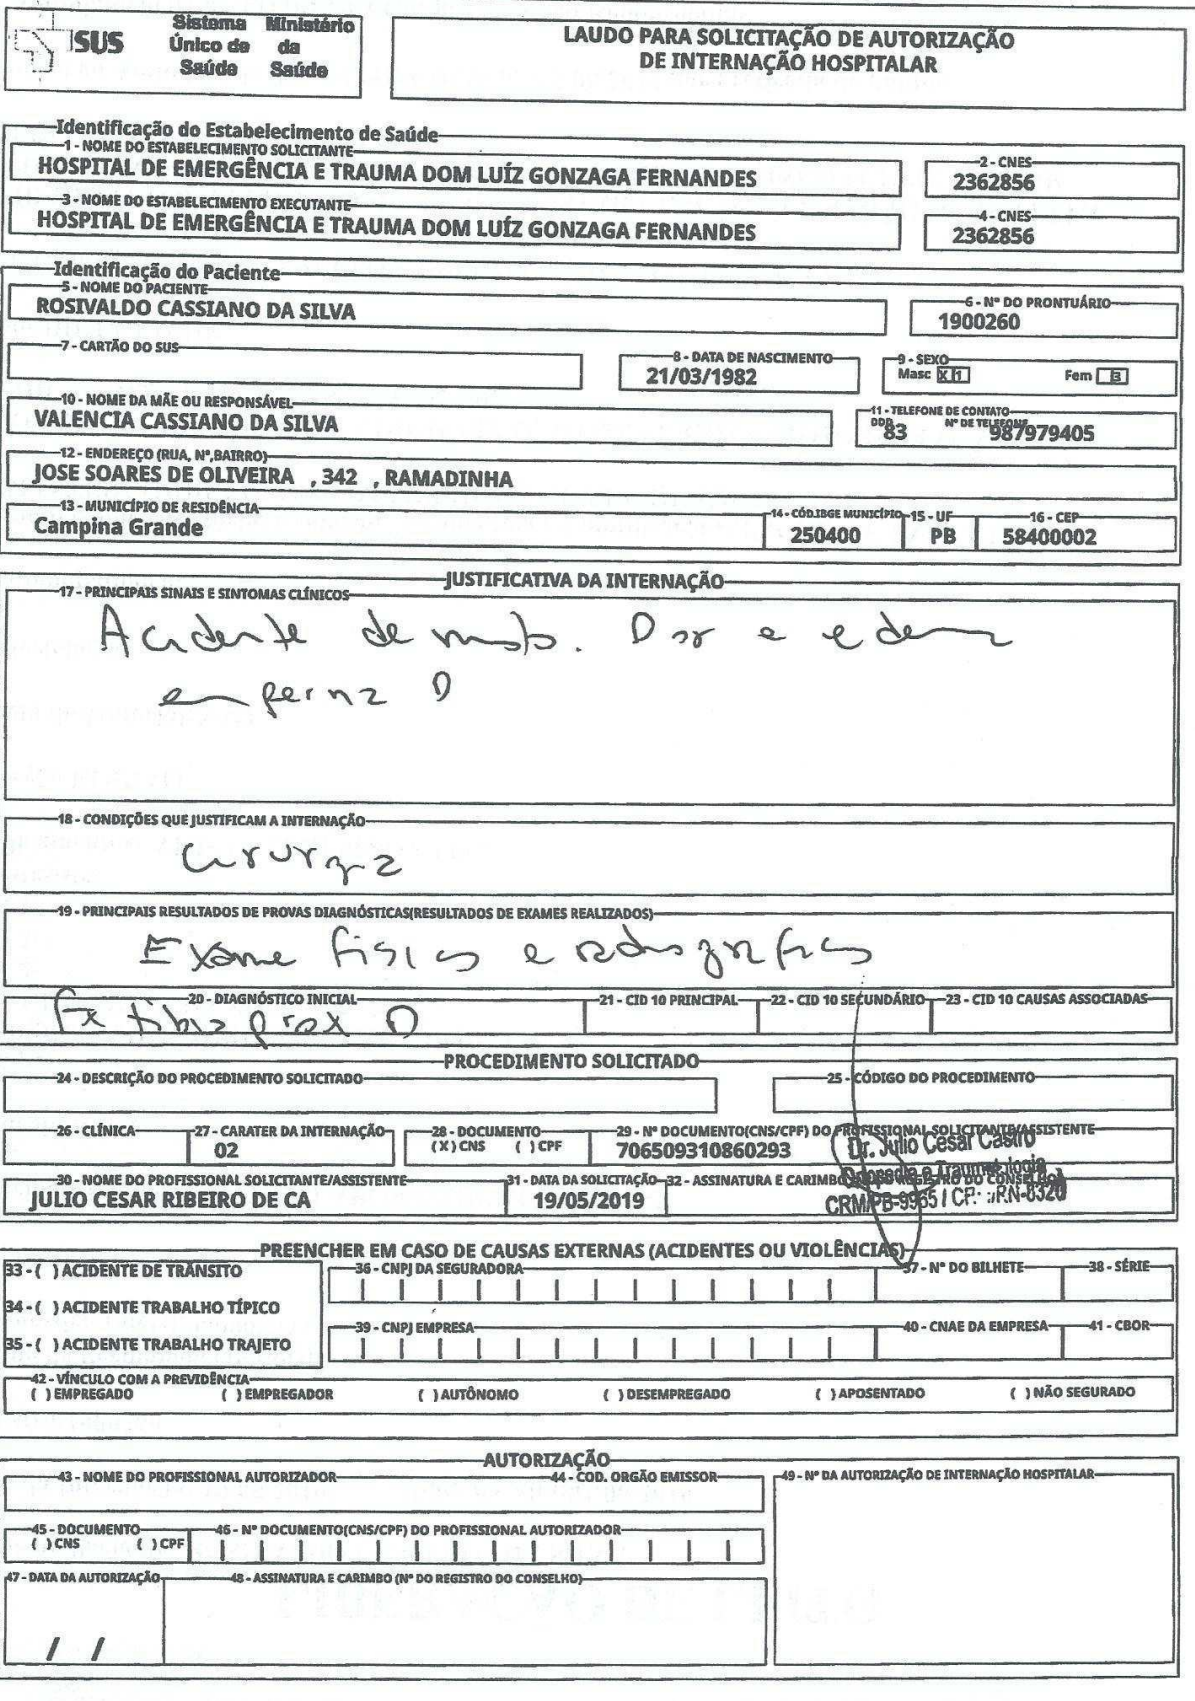 SUS
Sistema Ministério
Único de da
Saúde Saúde
LAUDO PARA SOLICITAÇÃO DE AUTORIZAÇÃO
DE INTERNAÇÃO HOSPITALAR
Identificação do Estabelecimento de Saúde
1 - NOME DO ESTABELECIMENTO SOLICITANTE
HOSPITAL DE EMERGÊNCIA E TRAUMA DOM LUÍZ GONZAGA FERNANDES
2 - CNES
2362856
3 - NOME DO ESTABELECIMENTO EXECUTANTE
HOSPITAL DE EMERGÊNCIA E TRAUMA DOM LUÍZ GONZAGA FERNANDES
4 - CNES
2362856
Identificação do Paciente
5 - NOME DO PACIENTE
ROSIVALDO CASSIANO DA SILVA
6 - Nº DO PRONTUÁRIO
1900260
7 - CARTÃO DO SUS
8 - DATA DE NASCIMENTO
21/03/1982
9 - SEXO
Masc X 1 Fem 3
10 - NOME DA MÃE OU RESPONSÁVEL
VALENCIA CASSIANO DA SILVA
11 - TELEFONE DE CONTATO
DDD Nº DE TELEFONE
83 987979405
12 - ENDEREÇO (RUA, Nº,BAIRRO)
JOSE SOARES DE OLIVEIRA , 342 , RAMADINHA
13 - MUNICÍPIO DE RESIDÊNCIA
Campina Grande
14 - CÓD.IBGE MUNICÍPIO
250400
15 - UF
PB
16 - CEP
58400002
JUSTIFICATIVA DA INTERNAÇÃO
17 - PRINCIPAIS SINAIS E SINTOMAS CLÍNICOS
Acidente de moto. Dor e edema
em perna D
18 - CONDIÇÕES QUE JUSTIFICAM A INTERNAÇÃO
Cirurgia
19 - PRINCIPAIS RESULTADOS DE PROVAS DIAGNÓSTICAS(RESULTADOS DE EXAMES REALIZADOS)
Exame físico e radiográfico
20 - DIAGNÓSTICO INICIAL
Fx tibia prox D
21 - CID 10 PRINCIPAL
22 - CID 10 SECUNDÁRIO
23 - CID 10 CAUSAS ASSOCIADAS
PROCEDIMENTO SOLICITADO
24 - DESCRIÇÃO DO PROCEDIMENTO SOLICITADO
25 - CÓDIGO DO PROCEDIMENTO
26 - CLÍNICA
27 - CARATER DA INTERNAÇÃO
02
28 - DOCUMENTO
(X) CNS ( ) CPF
29 - Nº DOCUMENTO(CNS/CPF) DO PROFISSIONAL SOLICITANTE/ASSISTENTE
706509310860293
Dr. Julio Cesar Castro
Ortopedia e Traumatologia
CRM/PB-9965
30 - NOME DO PROFISSIONAL SOLICITANTE/ASSISTENTE
JULIO CESAR RIBEIRO DE CA
31 - DATA DA SOLICITAÇÃO
19/05/2019
32 - ASSINATURA E CARIMBO REGISTRO DO CONSELHO)
PREENCHER EM CASO DE CAUSAS EXTERNAS (ACIDENTES OU VIOLÊNCIAS)
33 - ( ) ACIDENTE DE TRÂNSITO
34 - ( ) ACIDENTE TRABALHO TÍPICO
35 - ( ) ACIDENTE TRABALHO TRAJETO
36 - CNPJ DA SEGURADORA
37 - Nº DO BILHETE
38 - SÉRIE
39 - CNPJ EMPRESA
40 - CNAE DA EMPRESA
41 - CBOR
42 - VÍNCULO COM A PREVIDÊNCIA
( ) EMPREGADO ( ) EMPREGADOR ( ) AUTÔNOMO ( ) DESEMPREGADO ( ) APOSENTADO ( ) NÃO SEGURADO
AUTORIZAÇÃO
43 - NOME DO PROFISSIONAL AUTORIZADOR
44 - COD. ORGÃO EMISSOR
49 - Nº DA AUTORIZAÇÃO DE INTERNAÇÃO HOSPITALAR
45 - DOCUMENTO
( ) CNS ( ) CPF
46 - Nº DOCUMENTO(CNS/CPF) DO PROFISSIONAL AUTORIZADOR
47 - DATA DA AUTORIZAÇÃO
/ /
48 - ASSINATURA E CARIMBO (Nº DO REGISTRO DO CONSELHO)